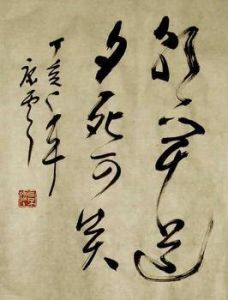 朝闻道
夕死可矣
丁亥年